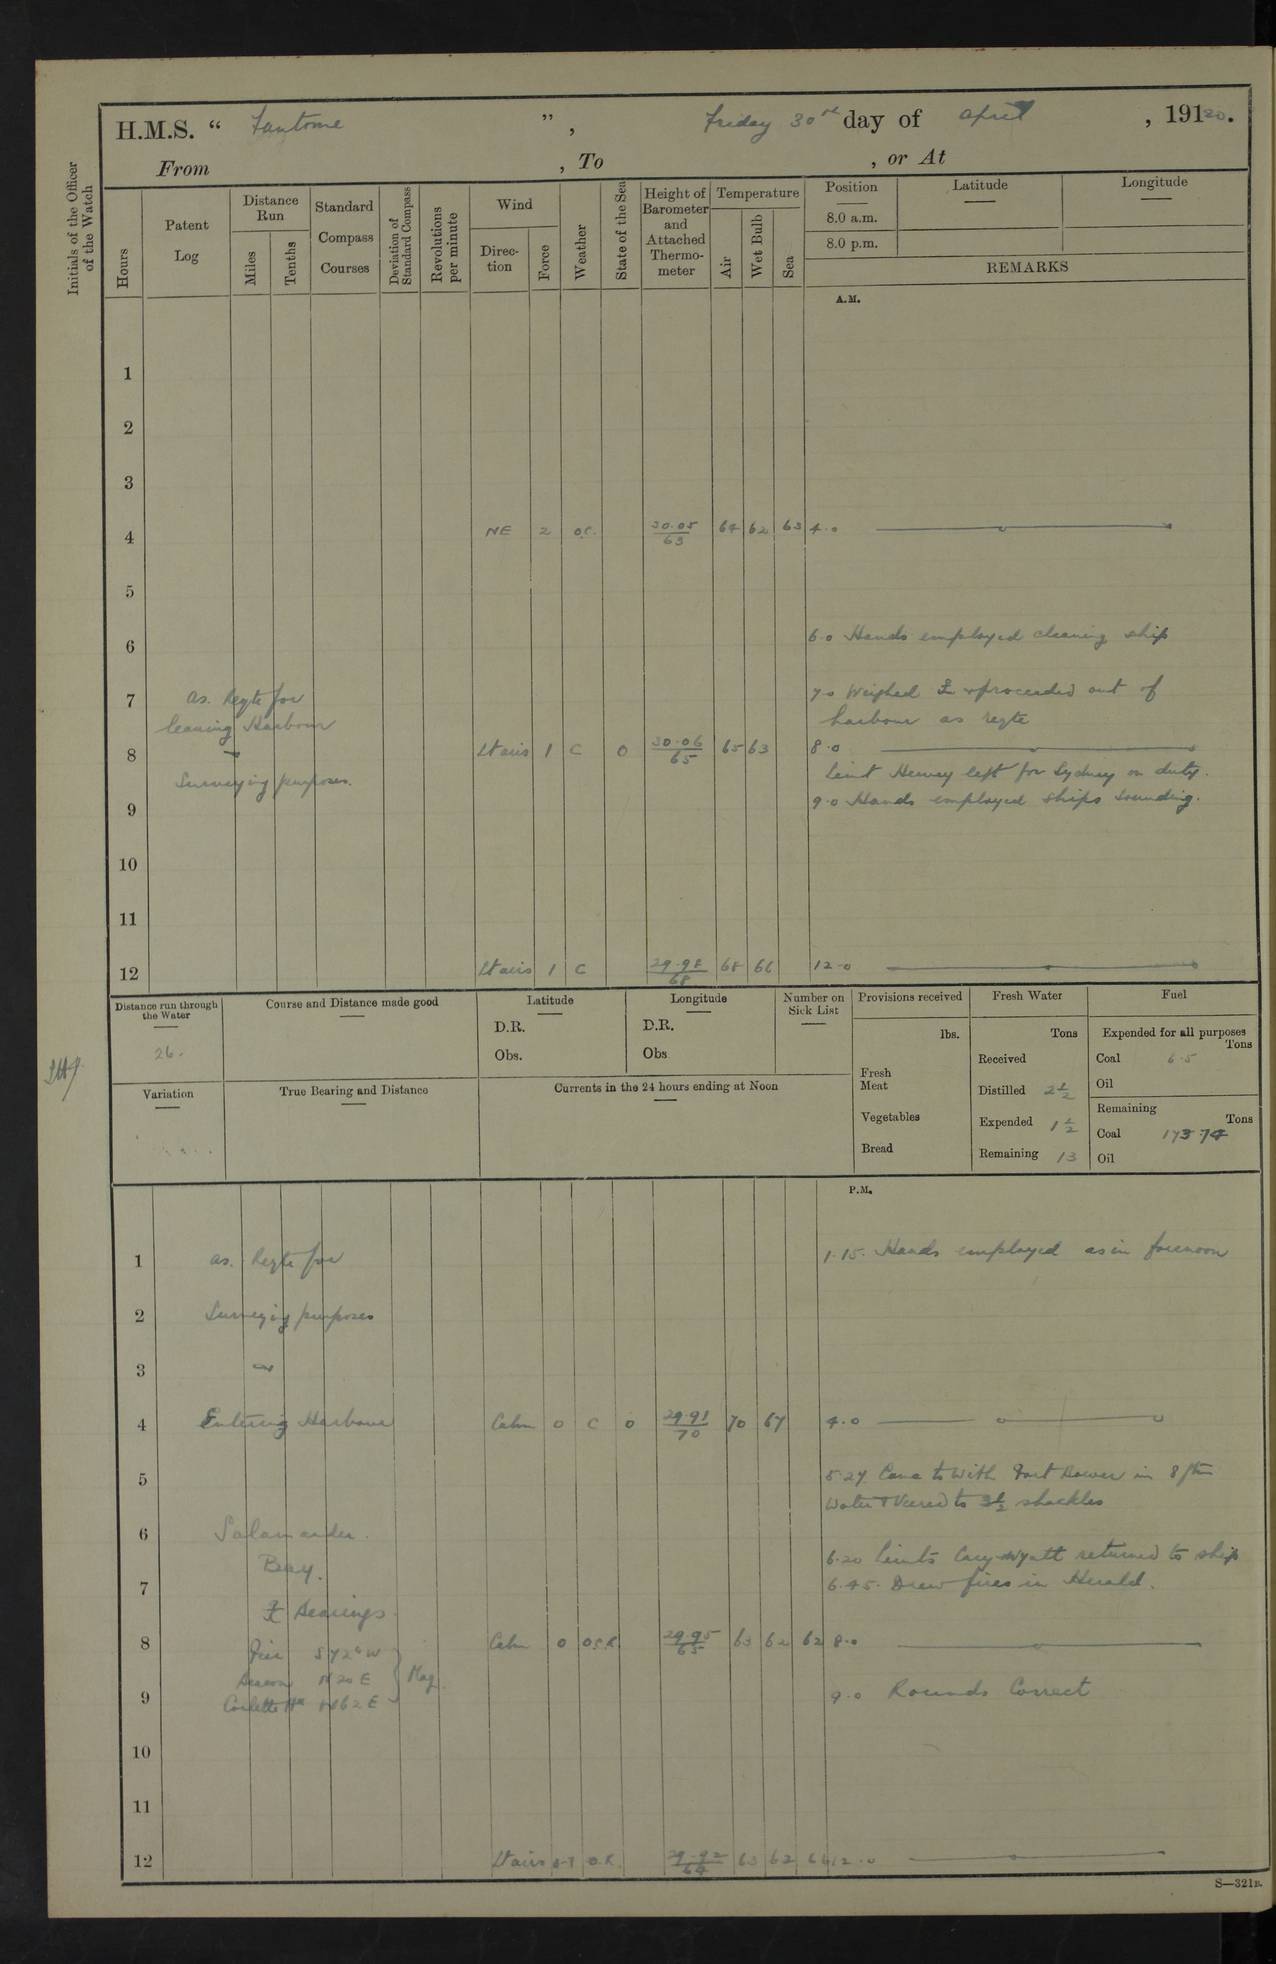 H.M.S. “ Fantome ”, Friday 30th day of April, 19120.
From , To , or At
Initials of the Officer of the Watch
Hours
Patent Log
Distance Run
Miles
Tenths
Standard Compass Courses
Deviation of Standard Compass
Revolutions per minute
Wind
Direction
Force
Weather
State of the Sea
Height of Barometer and Attached Thermometer
Temperature
Air
Wet Bulb
Sea
Position Latitude Longitude
8.0 a.m.
8.0 p.m.
REMARKS
A.M.
1
2
3
4 NE 2 o.c. 30.05/63 64 62 63 4.0
5
6 6.0 Hands employed cleaning ship
7 as. Reqte for 7.0 Weighed & proceeded out of
leaving Harbour harbour as reqte
8 Lt airs 1 C 0 30.06/65 65 63 8.0
Surveying purposes. Lieut Hervey left for Sydney on duty.
9 9.0 Hands employed ships sounding.
10
11
12 Lt airs 1 C 29.98/68 68 66 12.0
Distance run through the Water
26.
Course and Distance made good
Latitude
D.R.
Obs.
Longitude
D.R.
Obs
Number on Sick List
Provisions received
lbs.
Fresh Meat
Vegetables
Bread
Fresh Water
Tons
Received
Distilled 2½
Expended 1½
Remaining 13
Fuel
Expended for all purposes
Tons
Coal 6.5
Oil
Remaining
Tons
Coal 173.74
Oil
Variation
True Bearing and Distance
Currents in the 24 hours ending at Noon
P.M.
1 as. Reqte for 1.15. Hands employed as in forenoon
2 Surveying purposes
3
4 Entering Harbour Calm 0 C 0 29.91/70 70 67 4.0
5 5.27 Came to with Port Bower in 8 fms
Water & Veered to 3½ shackles
6 Salamander
Bay. 6.20 Lieuts Cary Wyatt returned to ship
7 6.45. Drew fires in Herald.
Bearings.
8 Calm 0 29.95/65 63 62 62 8.0
Pier S 72° W
Beacon N 20 E Mag.
Corlette Hd N 62 E
9 9.0 Rounds Correct
10
11
12 Lt airs 0-1 O.R. 29.92/64 63 62 12.0
S—321B.